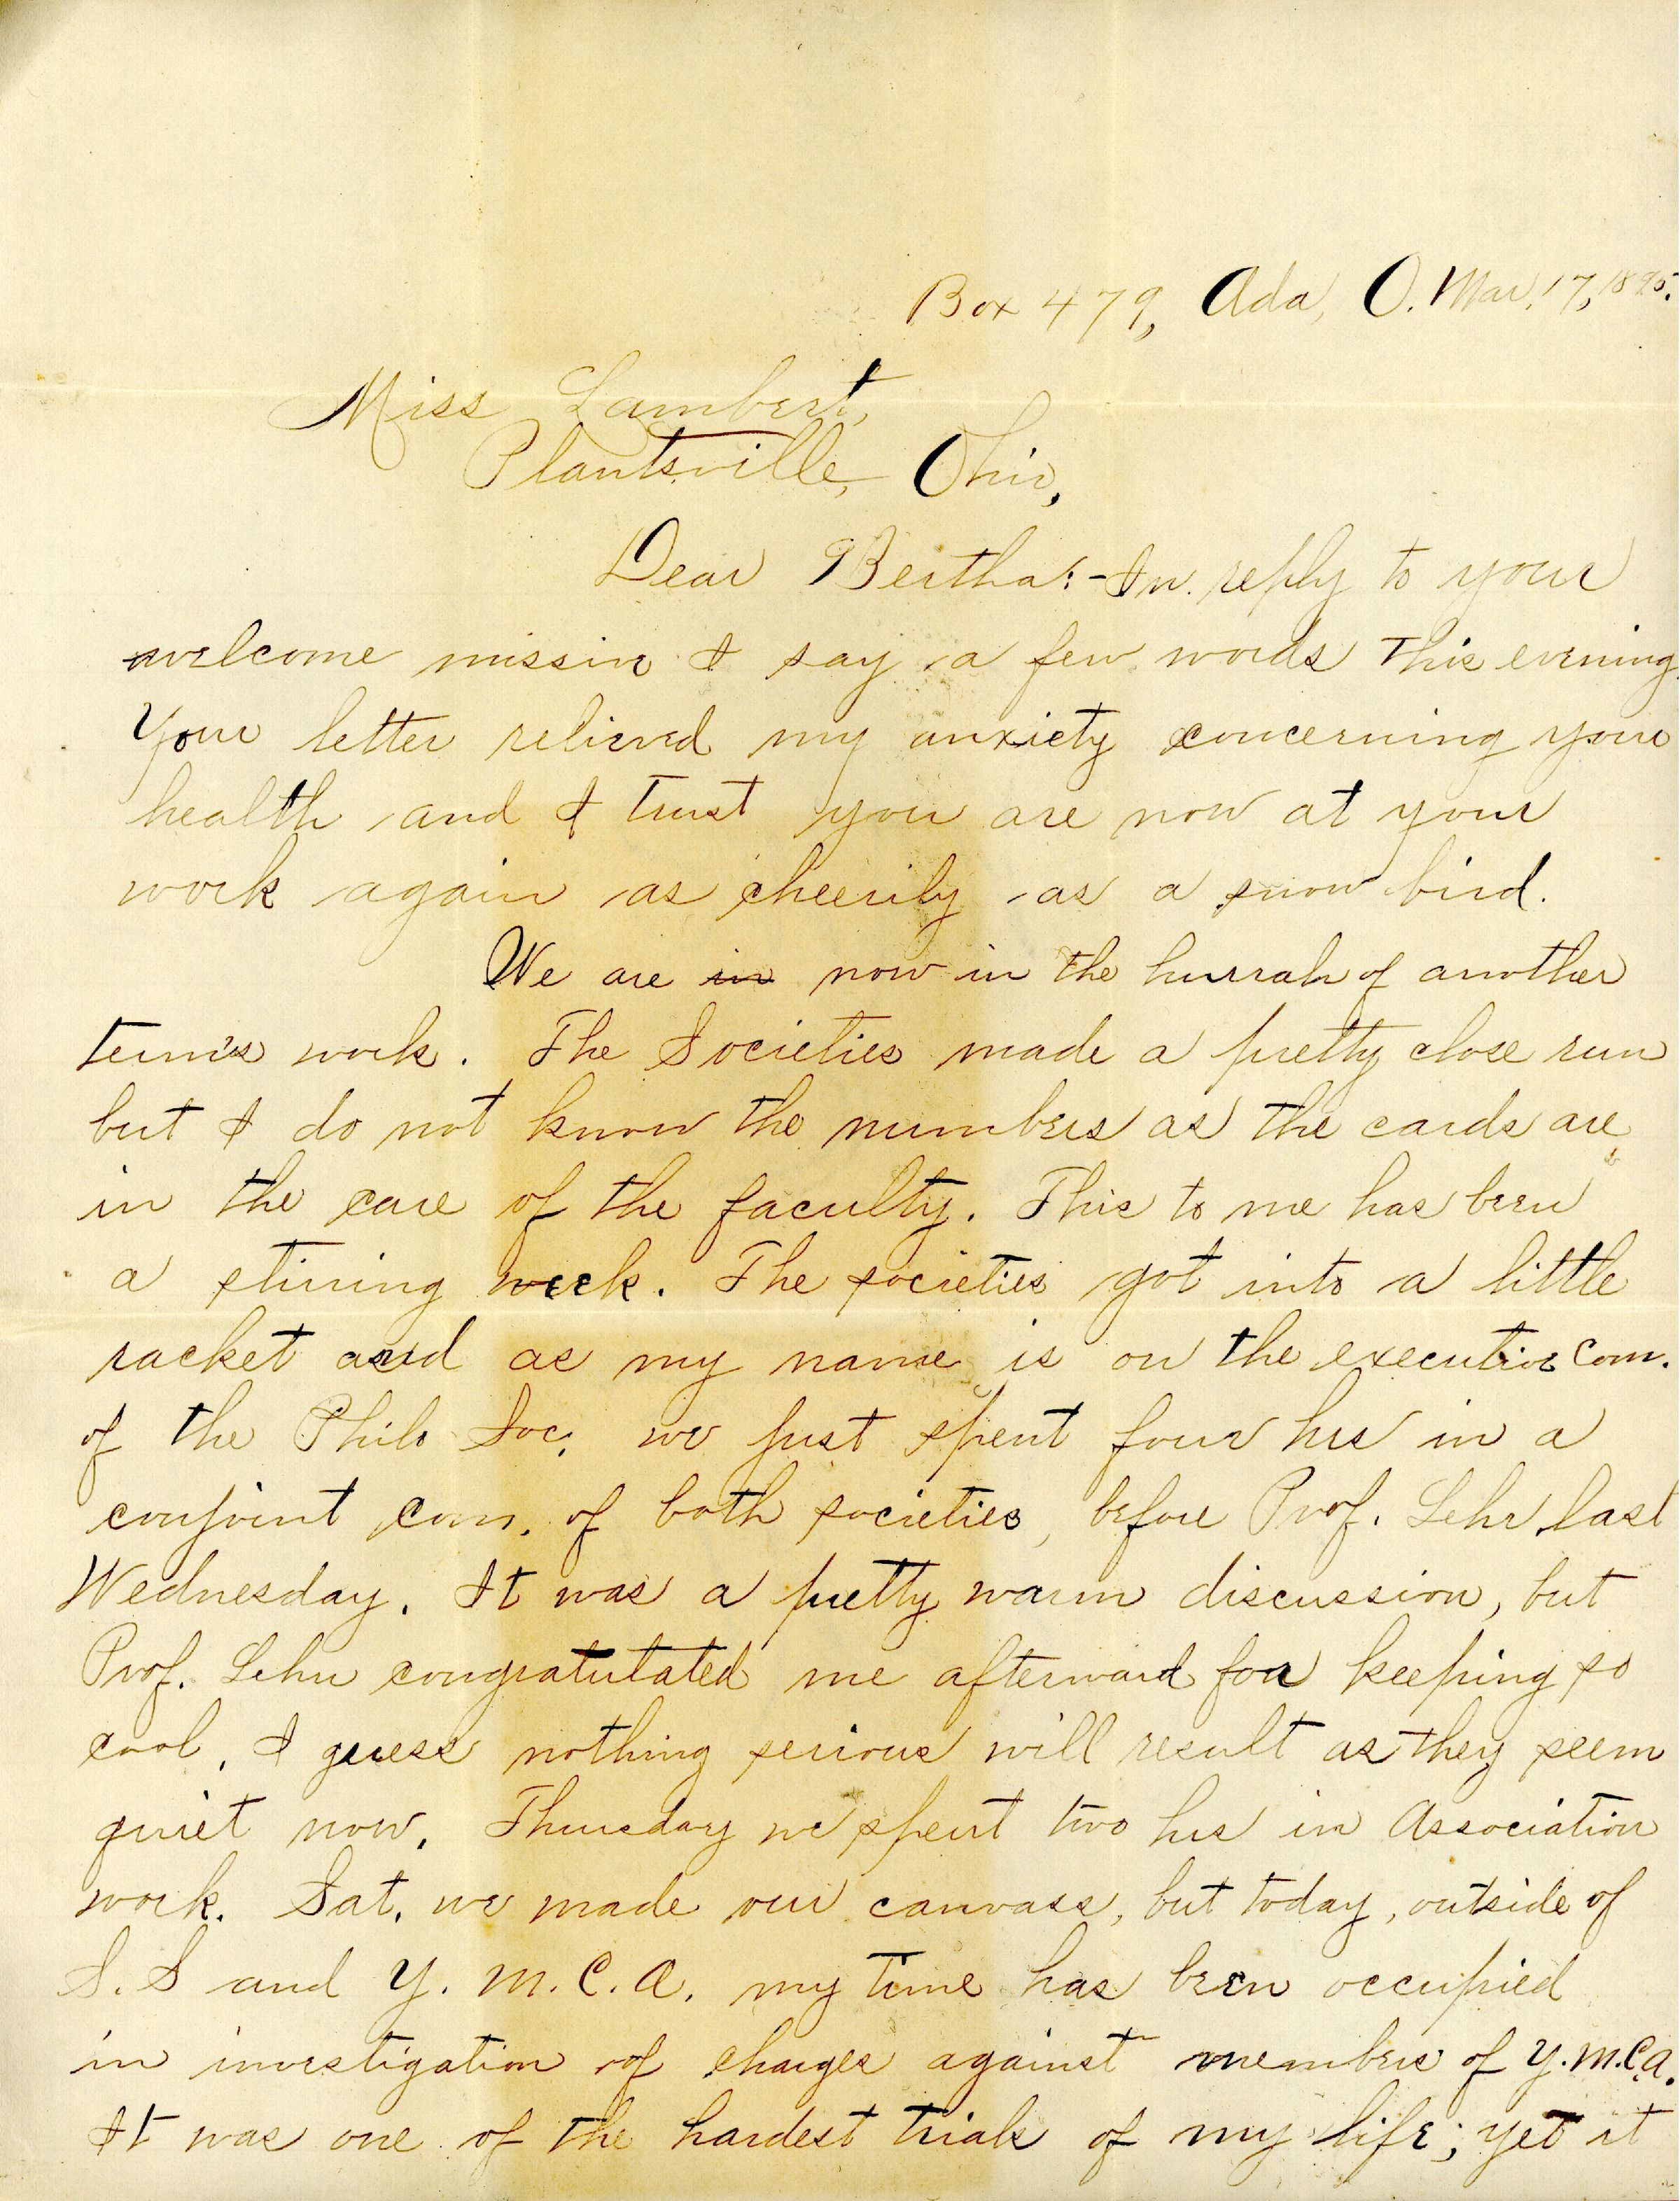 Box 479, Ada, O. Mar. 17, 1895.
Miss Lambert,
Plantsville, Ohio,
Dear Bertha:- In reply to your
welcome missive I say a few words this evening.
Your letter relieved my anxiety concerning your
health and I trust you are now at your
work again as cheerily as a snow bird.
We are in now in the hurrah of another
term's work. The Societies made a pretty close run
but I do not know the numbers as the cards are
in the care of the faculty. This to me has been
a stirring week. The societies got into a little
racket and as my name is on the executive com.
of the Philo Soc. we just spent four hrs in a
conjoint com. of both societies, before Prof. Lehr last
Wednesday. It was a pretty warm discussion, but
Prof. Lehr congratulated me afterward for keeping so
cool. I guess nothing serious will result as they seem
quiet now. Thursday we spent two hrs in Association
work. Sat. we made our canvass, but today, outside of
S. S and Y. M. C. A. my time has been occupied
in investigation of charges against members of Y.M.C.A.
It was one of the hardest trials of my life; yet it